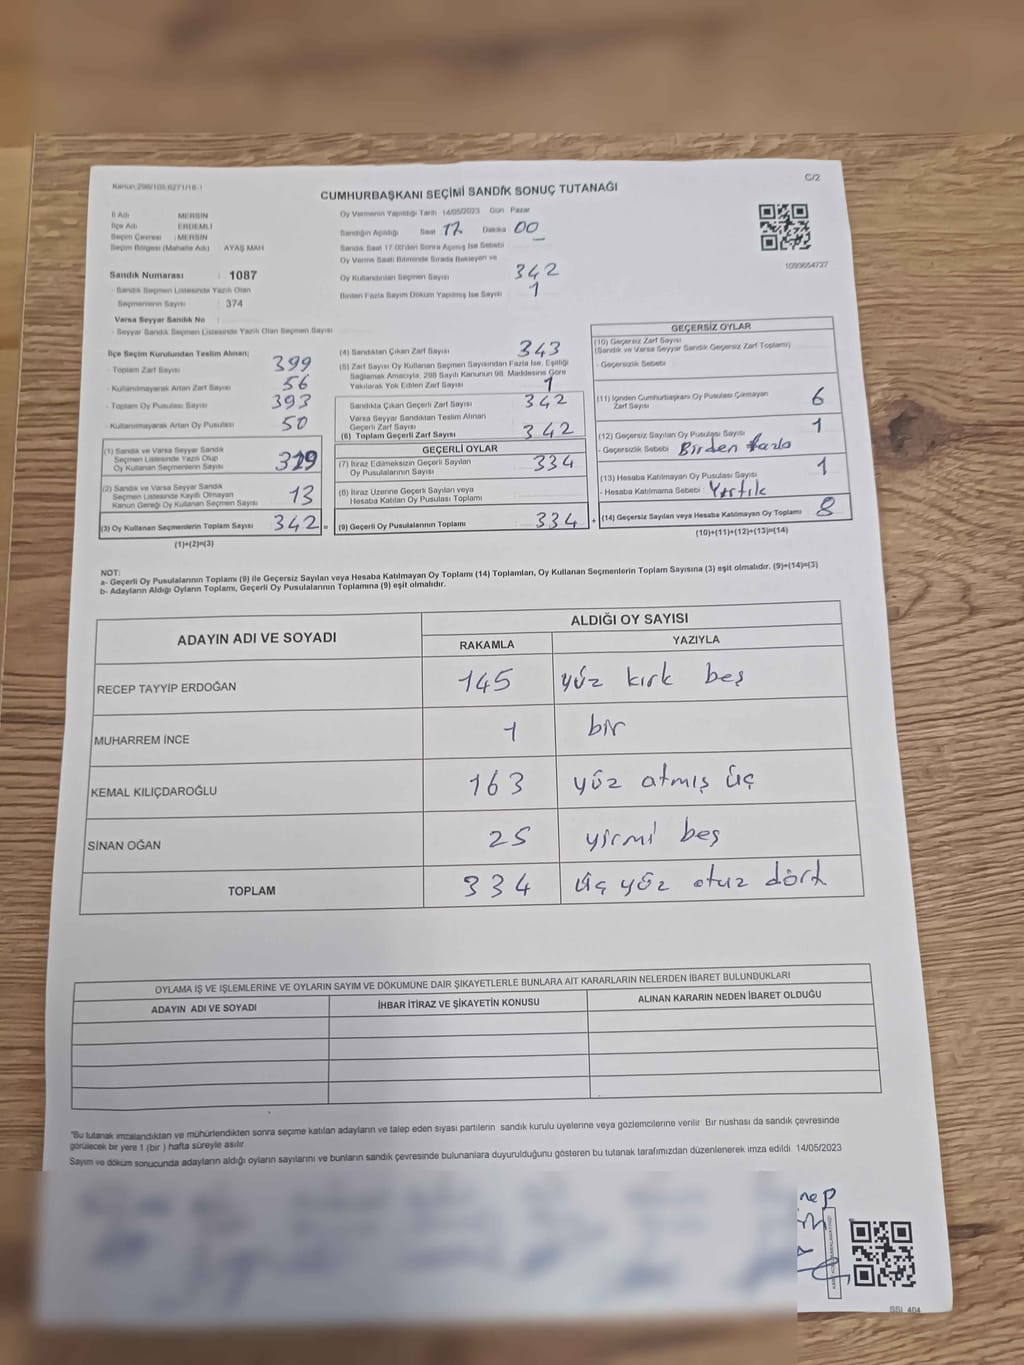 Kanun:298/108;6271/18-1
C/2
CUMHURBAŞKANI SEÇİMİ SANDIK SONUÇ TUTANAĞI
İl Adı MERSİN
İlçe Adı ERDEMLİ
Seçim Çevresi : MERSİN
Seçim Bölgesi (Mahalle Adı) : AYAŞ MAH
Sandık Numarası : 1087
Sandık Seçmen Listesinde Yazılı Olan
Seçmenlerin Sayısı : 374
Varsa Seyyar Sandık No :
- Seyyar Sandık Seçmen Listesinde Yazılı Olan Seçmen Sayısı
Oy Vermenin Yapıldığı Tarih 14/05/2023 Gün Pazar
Sandığın Açıldığı Saat 17 Dakika 00
Sandık Saat 17.00'den Sonra Açılmış İse Sebebi
Oy Verme Saati Bitiminde Sırada Bekleyen ve
Oy Kullandırılan Seçmen Sayısı 342
Birden Fazla Sayım Döküm Yapılmış İse Sayısı 1
1099654727
İlçe Seçim Kurulundan Teslim Alınan;
- Toplam Zarf Sayısı 399
- Kullanılmayarak Artan Zarf Sayısı 56
- Toplam Oy Pusulası Sayısı 393
- Kullanılmayarak Artan Oy Pusulası 50
(1) Sandık ve Varsa Seyyar Sandık
Seçmen Listesinde Yazılı Olup
Oy Kullanan Seçmenlerin Sayısı
(2) Sandık ve Varsa Seyyar Sandık
Seçmen Listesinde Kayıtlı Olmayan
Kanun Gereği Oy Kullanan Seçmen Sayısı 13
(3) Oy Kullanan Seçmenlerin Toplam Sayısı 342 =
(1)+(2)=(3)
(4) Sandıktan Çıkan Zarf Sayısı 343
(5) Zarf Sayısı Oy Kullanan Seçmen Sayısından Fazla İse, Eşitliği
Sağlamak Amacıyla, 298 Sayılı Kanunun 98. Maddesine Göre
Yakılarak Yok Edilen Zarf Sayısı 1
Sandıkta Çıkan Geçerli Zarf Sayısı 342
Varsa Seyyar Sandıktan Teslim Alınan
Geçerli Zarf Sayısı
(6) Toplam Geçerli Zarf Sayısı 342
GEÇERLİ OYLAR
(7) İtiraz Edilmeksizin Geçerli Sayılan
Oy Pusulalarının Sayısı 334
(8) İtiraz Üzerine Geçerli Sayılan veya
Hesaba Katılan Oy Pusulası Toplamı
(9) Geçerli Oy Pusulalarının Toplamı 334 +
GEÇERSİZ OYLAR
(10) Geçersiz Zarf Sayısı
(Sandık ve Varsa Seyyar Sandık Geçersiz Zarf Toplamı)
- Geçersizlik Sebebi
(11) İçinden Cumhurbaşkanı Oy Pusulası Çıkmayan
Zarf Sayısı 6
(12) Geçersiz Sayılan Oy Pusulası Sayısı 1
- Geçersizlik Sebebi Birden fazla
(13) Hesaba Katılmayan Oy Pusulası Sayısı 1
- Hesaba Katılmama Sebebi Yırtık
(14) Geçersiz Sayılan veya Hesaba Katılmayan Oy Toplamı 8
(10)+(11)+(12)+(13)=(14)
NOT:
a- Geçerli Oy Pusulalarının Toplamı (9) ile Geçersiz Sayılan veya Hesaba Katılmayan Oy Toplamı (14) Toplamları, Oy Kullanan Seçmenlerin Toplam Sayısına (3) eşit olmalıdır. (9)+(14)=(3)
b- Adayların Aldığı Oyların Toplamı, Geçerli Oy Pusulalarının Toplamına (9) eşit olmalıdır.
ADAYIN ADI VE SOYADI
ALDIĞI OY SAYISI
RAKAMLA YAZIYLA
RECEP TAYYİP ERDOĞAN 145 yüz kırk beş
MUHARREM İNCE 1 bir
KEMAL KILIÇDAROĞLU 163 yüz atmış üç
SİNAN OĞAN 25 yirmi beş
TOPLAM 334 üç yüz otuz dört
OYLAMA İŞ VE İŞLEMLERİNE VE OYLARIN SAYIM VE DÖKÜMÜNE DAİR ŞİKAYETLERLE BUNLARA AİT KARARLARIN NELERDEN İBARET BULUNDUKLARI
ADAYIN ADI VE SOYADI İHBAR İTİRAZ VE ŞİKAYETİN KONUSU ALINAN KARARIN NEDEN İBARET OLDUĞU
"Bu tutanak imzalandıktan ve mühürlendikten sonra seçime katılan adayların ve talep eden siyasi partilerin sandık kurulu üyelerine veya gözlemcilerine verilir. Bir nüshası da sandık çevresinde
görülecek bir yere 1 (bir ) hafta süreyle asılır.
Sayım ve döküm sonucunda adayların aldığı oyların sayılarını ve bunların sandık çevresinde bulunanlara duyurulduğunu gösteren bu tutanak tarafımızdan düzenlenerek imza edildi 14/05/2023
nep
SSİ 404